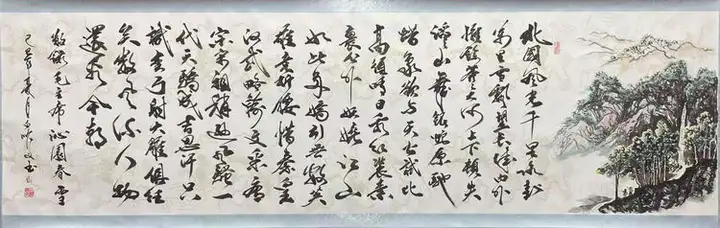 北國風光千里冰封
萬里雪飄望長城內外
惟餘莽莽大河上下頓失
滔滔山舞銀蛇原馳
蠟象欲與天公試比
高須晴日看紅裝素
裹分外妖嬈江山
如此多嬌引無數英
雄競折腰惜秦皇
漢武略輸文采唐
宗宋祖稍遜風騷一
代天驕成吉思汗只
識彎弓射大雕俱往
矣數風流人物
還看今朝
敬錄毛主席沁園春雪